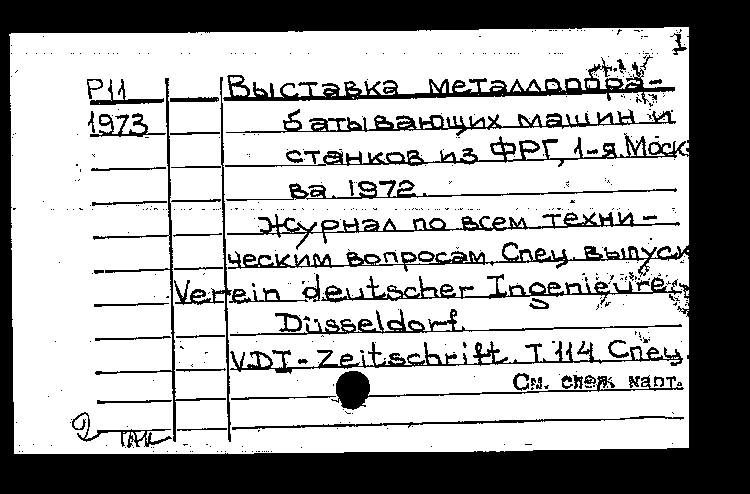 1
P11 Выставка металлообра-
1973 батывающих машин и
станков из ФРГ, 1-я. Моск-
ва. 1972.
Журнал по всем техни-
ческим вопросам. Спец. выпуск
Verein deutscher Ingenieure,
Düsseldorf.
VDI-Zeitschrift. Т. 114, Спец.
См. след. карт.
2